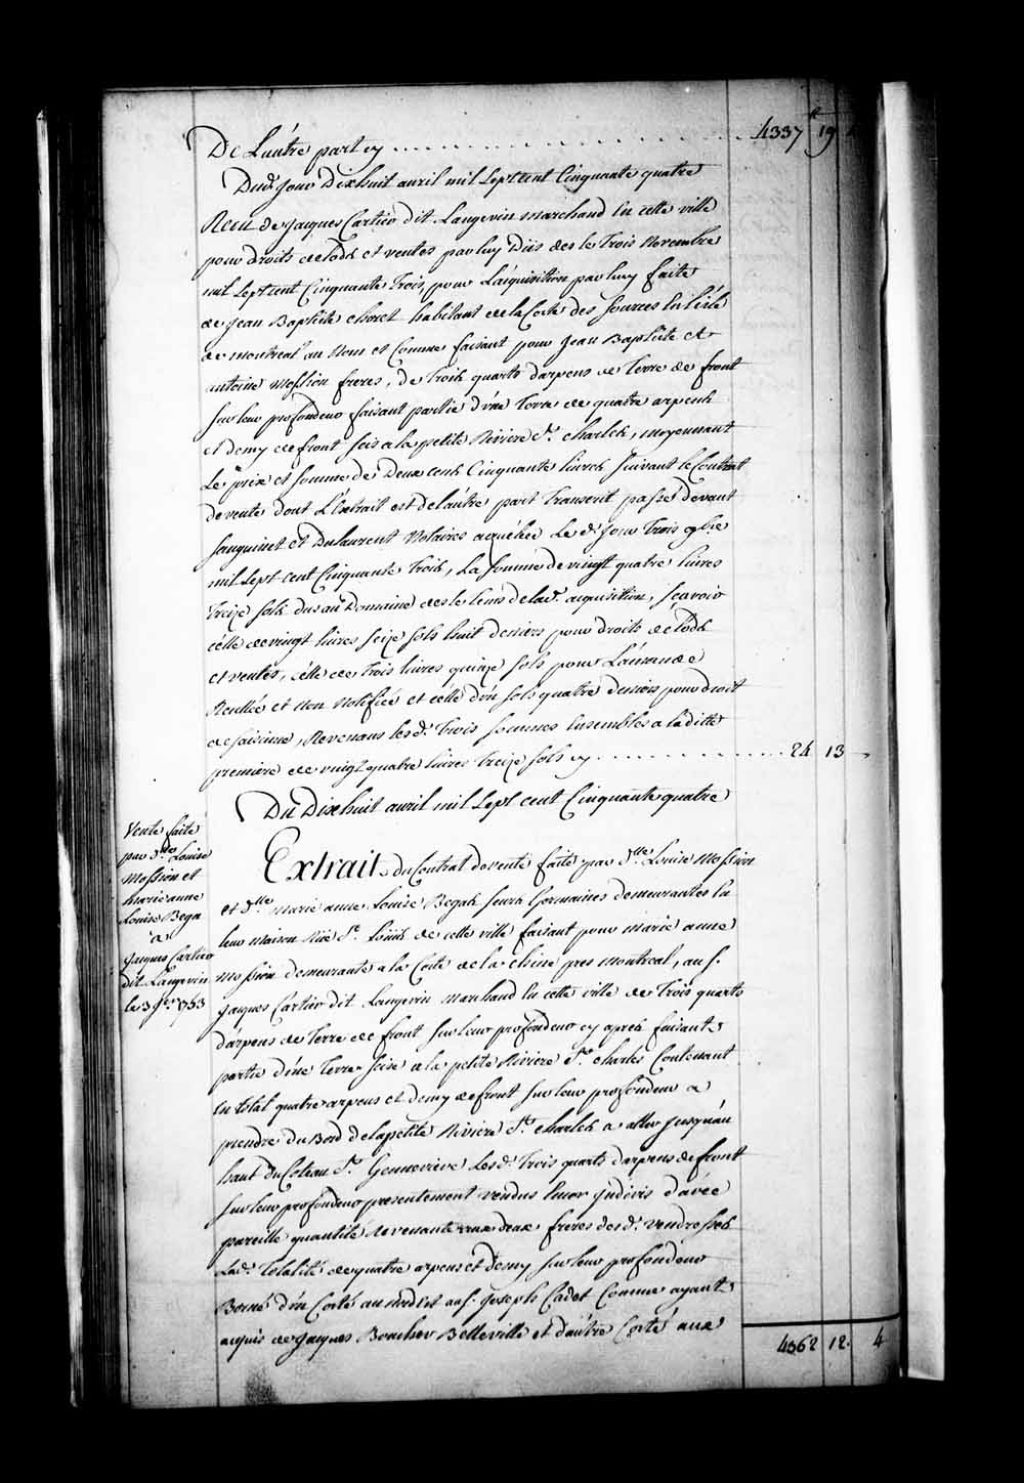 De L'autre part cy . . . . . . . . . . . . . . . 4337 ᵗᵗ 19
Dud. Jour Dixhuit avril mil Sept cent Cinquante quatre
Receu de Jacques Cartier dit Langevin marchand en cette ville
pour droits de lods et ventes par luy Dûs des le Trois Novembre
mil Sept cent Cinquante Trois, pour L'acquisition par luy faite
de Jean Baptiste choret habitant de la Coste des Sources en l'isle
de montreal au Nom et Comme faisant pour Jean Baptiste et
antoine Mossion freres, de Trois quarts d'arpens de Terre de front
sur leur profondeur faisant partie d'üne Terre de quatre arpents
et demy de front sise a la petite Riviere St. charles, moyennant
Le prix et somme de Deux cents Cinquante livres suivant le Contrat
de vente dont L'Extrait est de l'autre part Transcrit passé devant
Sanguinet et Dulaurent Notaires a quebec Le d. Jour Trois 9bre
mil Sept cent Cinquante Trois, La somme de vingt quatre livres
Treize sols dus au Domaine des le tems de lad. acquisition, sçavoir
célle de vingt livres seize sols huit deniers pour droits de lods
et ventes, célle de Trois livres quinze sols pour L'amande
Recellée et Non Notifiée et célle d'ün sols quatre deniers pour droit
de saisinne, Revenans les d. Trois sommes Ensembles a la ditte
premiere de vingt quatre livres Treize sols cy . . . . . . . . . . . 24 13
Du Dixhuit avril mil Sept cent Cinquante quatre
Vente faite
par Dlle Louise
Mossion et
marie anne
Louise Bega
a
Jacques Cartier
dit Langevin
le 3 9bre 1753
Extrait du Contrat de vente faite par Dlle Louise Mossion
et Dlle marie anne Louise Begas sœurs Germaines demeurantes En
leur maison Rüe St. Loüis de cette ville faisant pour marie anne
Mossion demeurante a la Coste de la chine pres montreal, au S.
Jacques Cartier dit Langevin marchand En cette ville de Trois quarts
d'arpens de Terre de front sur leur profondeur cy aprés faisant
partie d'üne Terre sise a la petite Riviere St. charles Contenant
En total quatre arpens et demy de front sur leur profondeur a
prendre du Bord de la petite Riviere St. charles a aller Jusqu'au
haut du Coteau Ste. Gennevieve Les d. Trois quarts d'arpens de front
sur leur profondeur presentement vendus Encor Indivis d'avec
pareille quantité Revenante aux deux freres des d. venderesses
Lad. Totalité de quatre arpens et demy sur leur profondeur
Borné d'ün Costé au nord'est au S. Joseph Cadet Comme ayant
acquis de Jacques Boucher Belleville et d'autre Costé aux
4362 12. 4